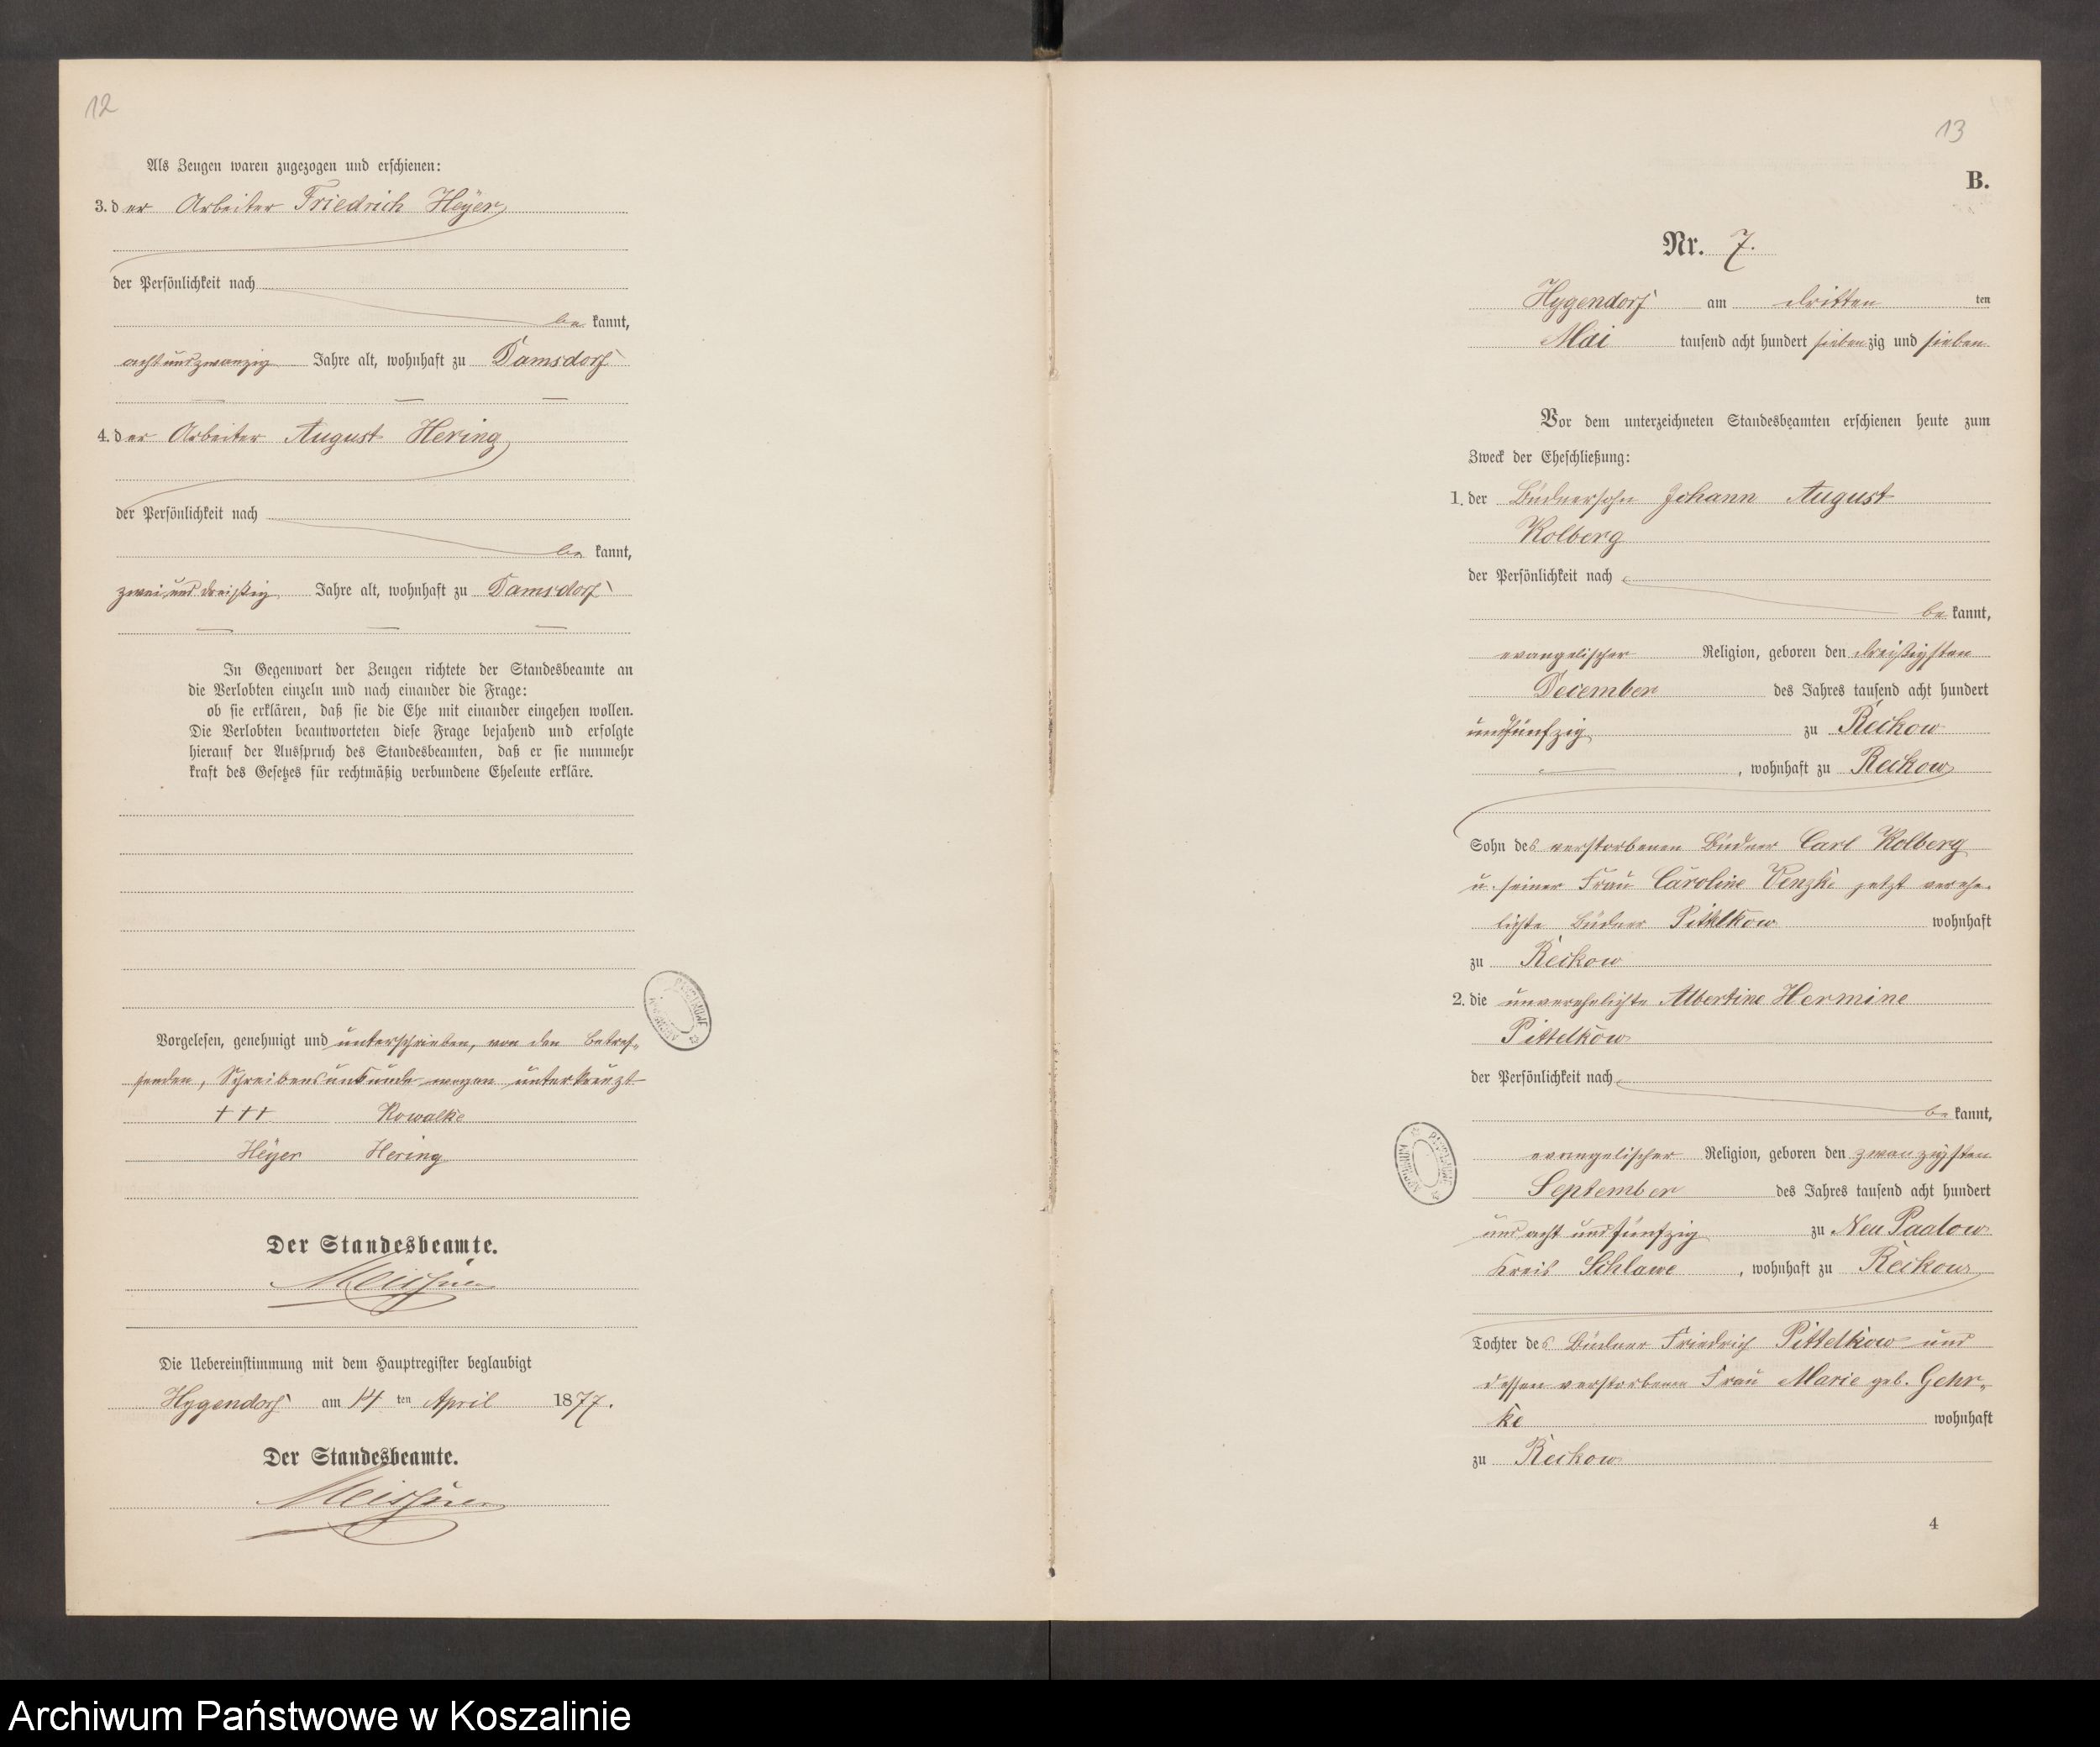 12
Als Zeugen waren zugezogen und erschienen:
3. der Arbeiter Friedrich Heyer
der Persönlichkeit nach
bekannt,
achtundzwanzig Jahre alt, wohnhaft zu Damsdorf
4. der Arbeiter August Hering
der Persönlichkeit nach
bekannt,
zweiunddreißig Jahre alt, wohnhaft zu Damsdorf
In Gegenwart der Zeugen richtete der Standesbeamte an
die Verlobten einzeln und nach einander die Frage:
ob sie erklären, daß sie die Ehe mit einander eingehen wollen.
Die Verlobten beantworteten diese Frage bejahend und erfolgte
hierauf der Ausspruch des Standesbeamten, daß er sie nunmehr
kraft des Gesetzes für rechtmäßig verbundene Eheleute erkläre.
Vorgelesen, genehmigt und unterschrieben, von den Betref-
fenden, Schreibensunkunde wegen unterkreuzt
+++ Kowalke
Heyer Hering
Der Standesbeamte.
Meissner
Die Uebereinstimmung mit dem Hauptregister beglaubigt
Hygendorf am 14 ten April 1877.
Der Standesbeamte.
Meissner
13
B.
Nr. 7.
Hygendorf am dritten ten
Mai tausend acht hundert siebenzig und sieben
Vor dem unterzeichneten Standesbeamten erschienen heute zum
Zweck der Eheschließung:
1. der Büdnersohn Johann August
Kolberg
der Persönlichkeit nach
bekannt,
evangelischer Religion, geboren den dreißigsten
December des Jahres tausend acht hundert
undfünfzig zu Reckow
, wohnhaft zu Reckow
Sohn des verstorbenen Büdner Carl Kolberg
u. seiner Frau Caroline Venzke jetzt verehe-
lichte Büdner Pittelkow wohnhaft
zu Reckow
2. die unverehelichte Albertine Hermine
Pittelkow
der Persönlichkeit nach
bekannt,
evangelischer Religion, geboren den zwanzigsten
September des Jahres tausend acht hundert
und acht und fünfzig zu Neu Paalow
Kreis Schlawe, wohnhaft zu Reckow
Tochter des Büdner Friedrich Pittelkow und
dessen verstorbenen Frau Marie geb. Gehr-
ke wohnhaft
zu Reckow
4
Archiwum Państwowe w Koszalinie